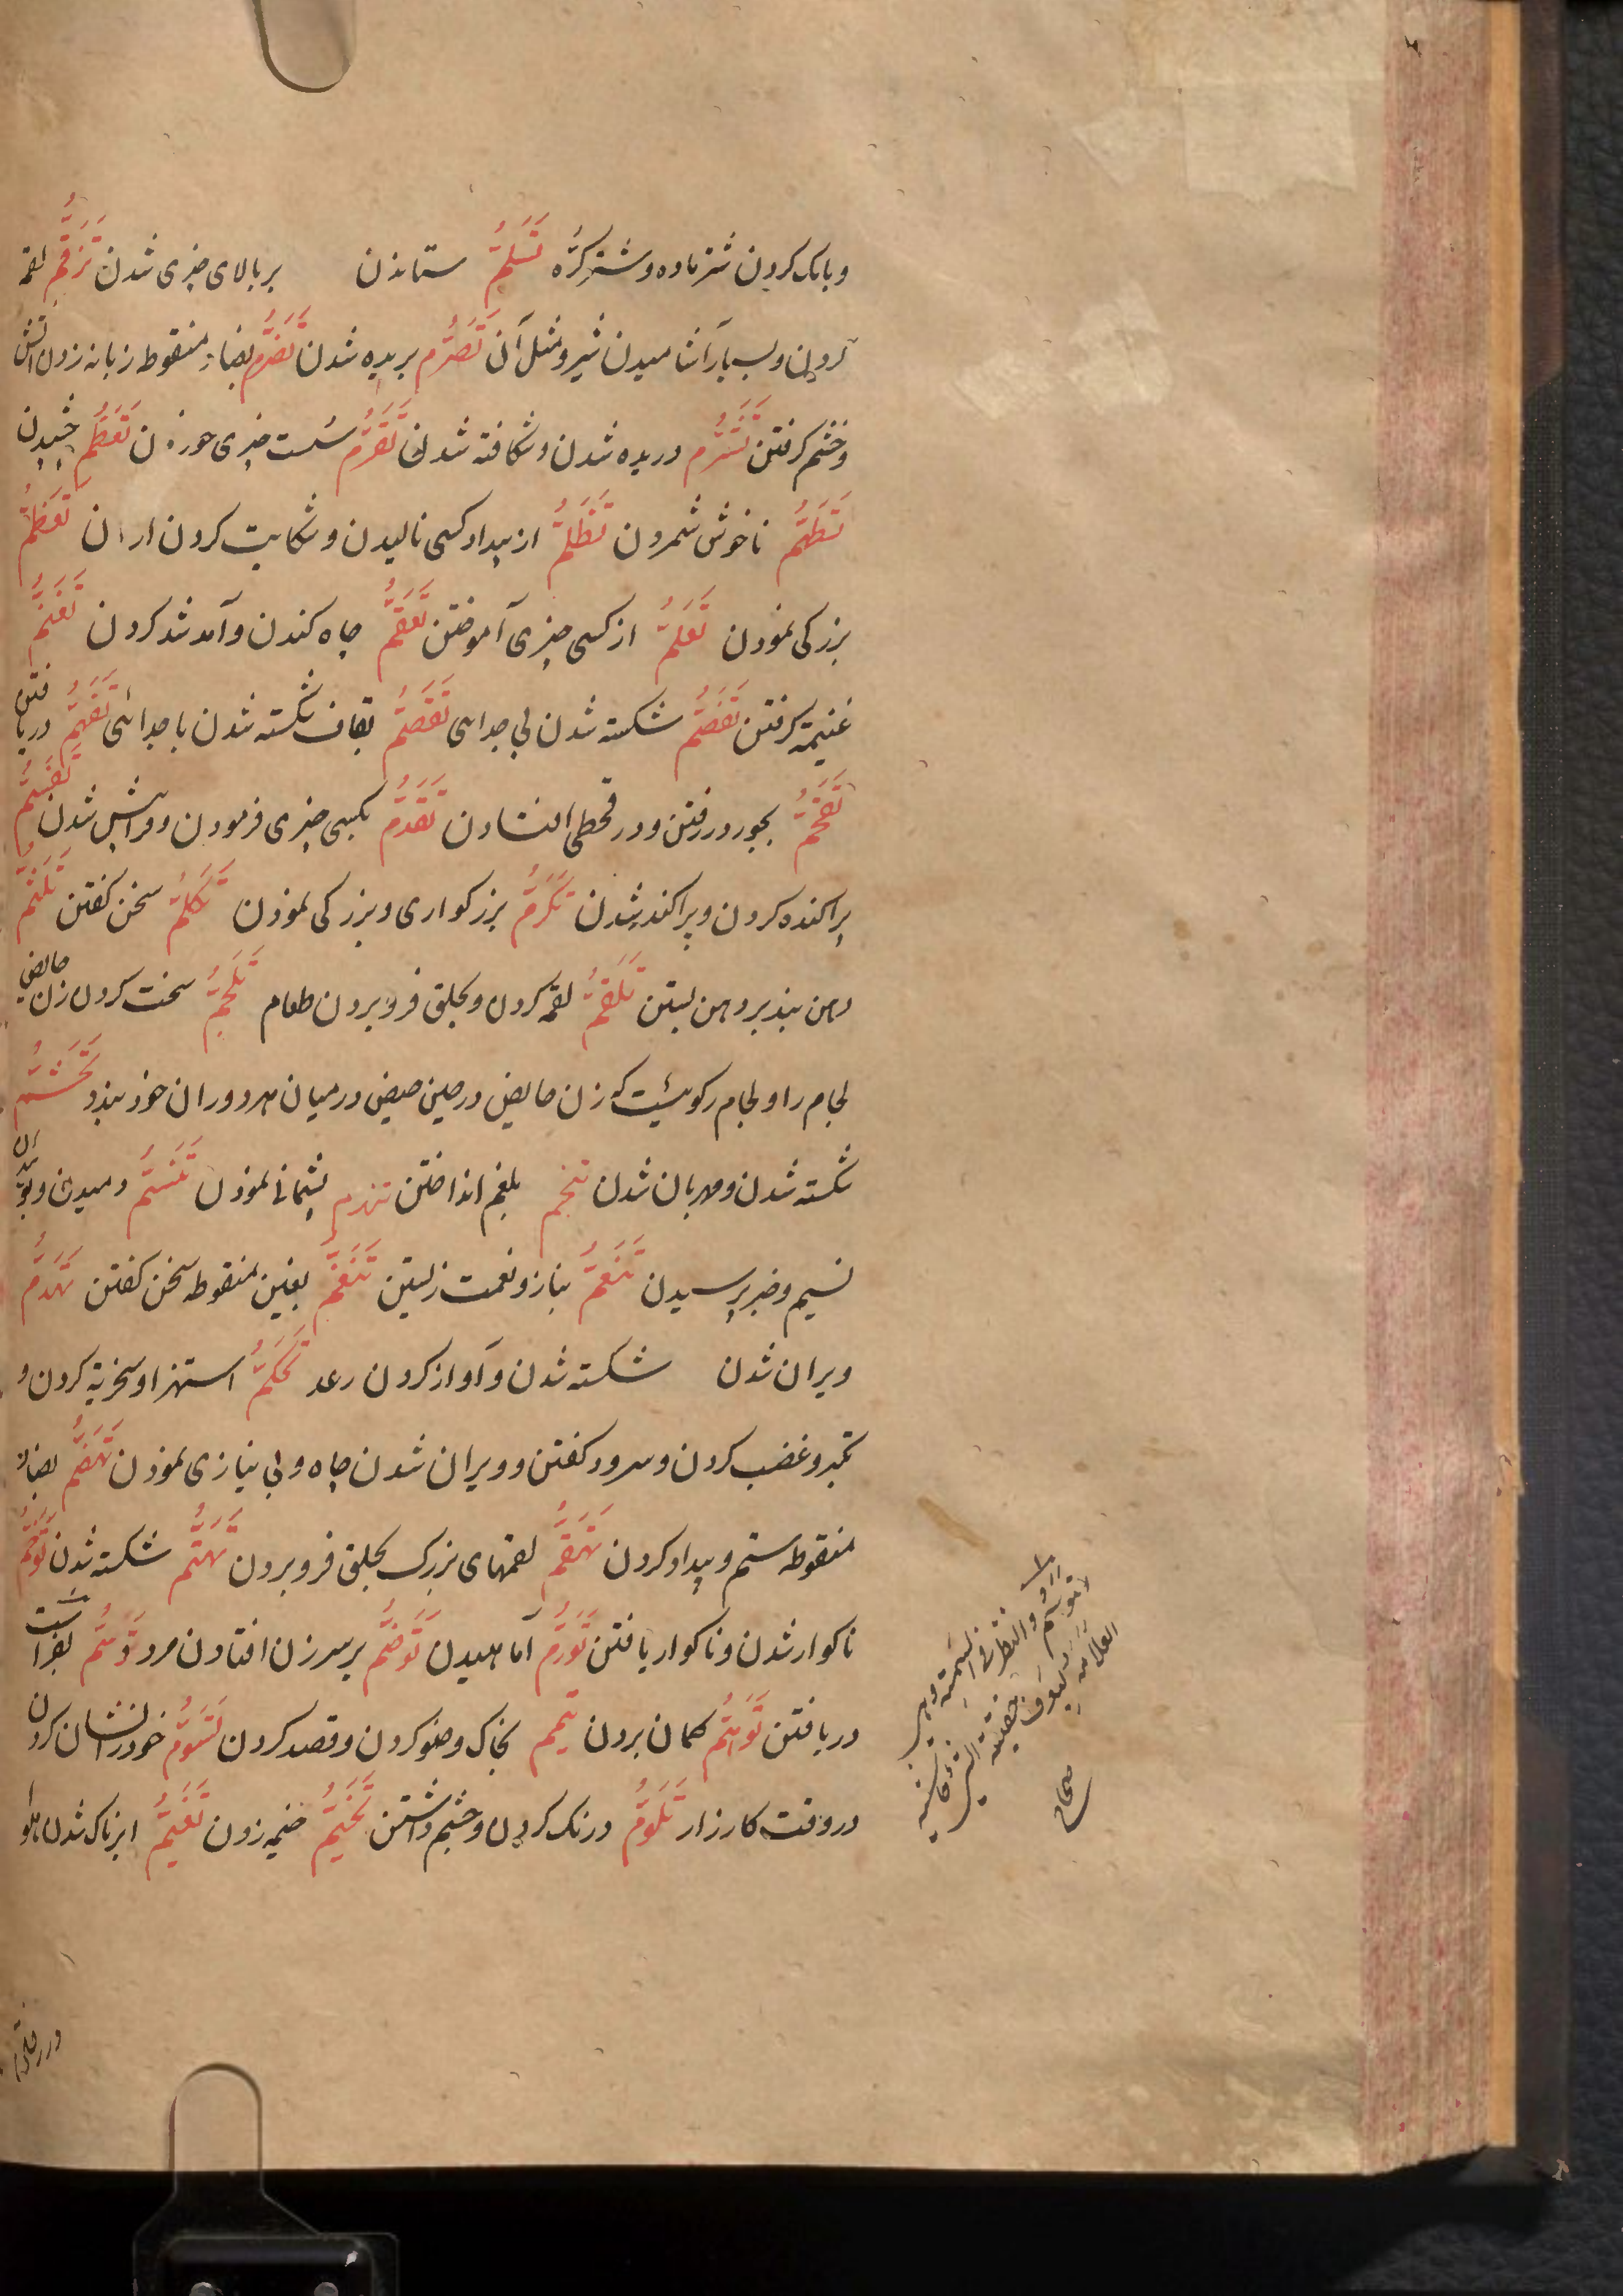 و بانک کردن شتر ماده و شتر کُرّه تَسَلُّمُ ستاندن بر بالای چیزی شدن تَزَقُّمُ لقمه
کردن و بسیار آشامیدن شیر و مثل آن تَصَرُّم بریده شدن تَضَرُّم بضاد منقوط زبانه زدن آتش
و خشم کرفتن تَشَرُّم دریده شدن و شکافته شدن تَقَرُّم سُست چیزی خوردن تَطَعُّم چشیدن
تَطَهُّمُ ناخوش شمردن تَظَلُّمُ از بیداد کسی نالیدن و شکایت کردن از ان تَعَظُّمُ
بزرکی نمودن تَعَلُّمُ از کسی چیزی آموختن تَعَقُّمُ چاه کندن و آمد شد کردن تَغَنُّمُ
غنیمة کرفتن تَفَصُّمُ شکسته شدن بی جدائی تَقَصُّمُ بقاف شکسته شدن با جدائی تَفَهُّمُ دریافتن
تَقَحُّمُ بجور در رفتن و در قحطی افتادن تَقَدُّمُ بکسی چیزی فرمودن و فراپیش شدن تَقَسُّمُ
پراکنده کردن و پراکنده شدن تَکَرُّمُ بزرکواری و بزرکی نمودن تَکَلُّمُ سخن کفتن تَلَثُّمُ
دهن بند بر دهن بستن تَلَقُّمُ لقمه کردن و بحلق فرو بردن طعام تَلَجُّمُ سخت کردن زن حایض
لجام را و لجام رکوئیست که زن حایض در حین حیض در میان هر دو ران خود بندد تَحَشُّمُ
شکسته شدن و مهربان شدن تنخم بلغم انداختن تندم پشیمانی نمودن تَنَسُّمُ دمیدن و بوئیدن
نسیم و خبر پرسیدن تَنَعُّمُ بناز و نعمت زیستن تَنَغُّمُ بغین منقوطه سخن کفتن تَهَدُّمُ
ویران شدن شکسته شدن و آواز کردن رعد تَهَکُّمُ استهزا و سخریة کردن و
تکبر و غضب کردن و سرود کفتن و ویران شدن چاه و بی نیازی نمودن تَهَضُّمُ بضاد
منقوطه ستم و بیداد کردن تَهَقُّمُ لقمهای بزرک بحلق فرو بردن تَهَتُّم شکسته شدن تَوَخُّمُ
ناکوار شدن و ناکوار یافتن تَوَرُّم آماهیدن تَوَضُّم بر سر زن افتادن مرد تَوَسُّم بفراست
دریافتن تَوَهُّمُ کمان بردن تیمم بخاک وضو کردن و قصد کردن تَسَوُّمُ خود را نشان کردن
در وقت کارزار تَلَوُّمُ درنک کردن و چشم داشتن تَخَیُّمُ خیمه زدن تَغَیُّمُ ابرناک شدن هوا
التوسم والنظر فی السمة وهی
العلامة
صحاح